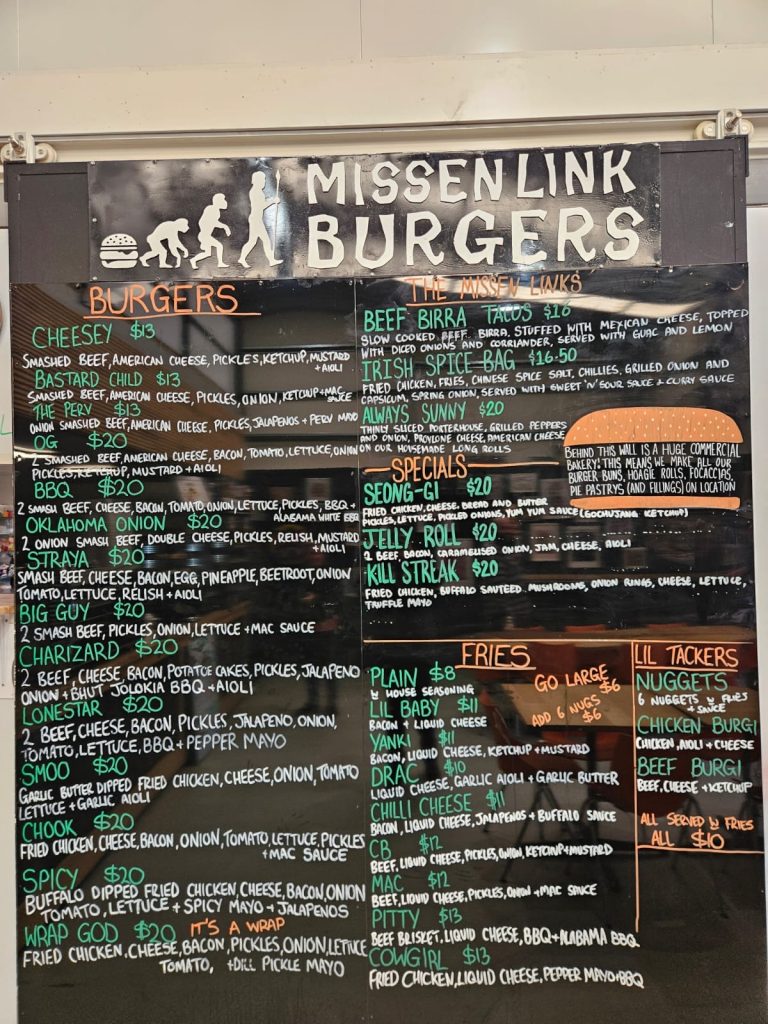 MISSEN LINK
BURGERS
BURGERS
CHEESEY $13
SMASHED BEEF, AMERICAN CHEESE, PICKLES, KETCHUP, MUSTARD
+ AIOLI
BASTARD CHILD $13
SMASHED BEEF, AMERICAN CHEESE, PICKLES, ONION, KETCHUP + MAC
SAUCE
THE PERV $13
ONION SMASHED BEEF, AMERICAN CHEESE, PICKLES, JALAPENOS + PERV MAYO
OG $20
2 SMASHED BEEF, AMERICAN CHEESE, BACON, TOMATO, LETTUCE, ONION
PICKLES, KETCHUP, MUSTARD + AIOLI
BBQ $20
2 SMASH BEEF, CHEESE, BACON, TOMATO, ONION, LETTUCE, PICKLES, BBQ +
ALABAMA WHITE BBQ
OKLAHOMA ONION $20
2 ONION SMASH BEEF, DOUBLE CHEESE, PICKLES, RELISH, MUSTARD
+ AIOLI
STRAYA $20
SMASH BEEF, CHEESE, BACON, EGG, PINEAPPLE, BEETROOT, ONION
TOMATO, LETTUCE, RELISH + AIOLI
BIG GUY $20
2 SMASH BEEF, PICKLES, ONION, LETTUCE + MAC SAUCE
CHARIZARD $20
2 BEEF, CHEESE, BACON, POTATOE CAKES, PICKLES, JALAPENO
ONION + BHUT JOLOKIA BBQ + AIOLI
LONESTAR $20
2 BEEF, CHEESE, BACON, PICKLES, JALAPENO, ONION,
TOMATO, LETTUCE, BBQ + PEPPER MAYO
SMOO $20
GARLIC BUTTER DIPPED FRIED CHICKEN, CHEESE, ONION, TOMATO
LETTUCE + GARLIC AIOLI
CHOOK $20
FRIED CHICKEN, CHEESE, BACON, ONION, TOMATO, LETTUCE, PICKLES
+ MAC SAUCE
SPICY $20
BUFFALO DIPPED FRIED CHICKEN, CHEESE, BACON, ONION
TOMATO, LETTUCE + SPICY MAYO + JALAPENOS
WRAP GOD $20 IT'S A WRAP
FRIED CHICKEN, CHEESE, BACON, PICKLES, ONION, LETTUCE
TOMATO, + DILL PICKLE MAYO
THE MISSEN LINKS
BEEF BIRRA TACOS $16
SLOW COOKED BEEF BIRRA, STUFFED WITH MEXICAN CHEESE, TOPPED
WITH DICED ONIONS AND CORRIANDER, SERVED WITH GUAC AND LEMON
IRISH SPICE BAG $16.50
FRIED CHICKEN, FRIES, CHINESE SPICE SALT, CHILLIES, GRILLED ONION AND
CAPSICUM, SPRING ONION, SERVED WITH SWEET 'N' SOUR SAUCE + CURRY SAUCE
ALWAYS SUNNY $20
THINLY SLICED PORTERHOUSE, GRILLED PEPPERS
AND ONION, PROVLONE CHEESE, AMERICAN CHEESE
ON OUR HOUSEMADE LONG ROLLS
BEHIND THIS WALL IS A HUGE COMMERCIAL
BAKERY! THIS MEANS WE MAKE ALL OUR
BURGER BUNS, HOAGIE ROLLS, FOCACCIAS,
PIE PASTRYS (AND FILINGS) ON LOCATION
SPECIALS
SEONG-GI $20
FRIED CHICKEN, CHEESE, BREAD AND BUTTER
PICKLES, LETTUCE, PICKLED ONIONS, YUM YUM SAUCE (GOCHUJANG KETCHUP)
JELLY ROLL $20
2 BEEF, BACON, CARAMELISED ONION, JAM, CHEESE, AIOLI
KILL STREAK $20
FRIED CHICKEN, BUFFALO SAUTEED MUSHROOMS, ONION RINGS, CHEESE, LETTUCE,
TRUFFLE MAYO
FRIES
PLAIN $8
W HOUSE SEASONING
GO LARGE
$6
ADD 6 NUGS
$6
LIL BABY $11
BACON + LIQUID CHEESE
YANKI $11
BACON, LIQUID CHEESE, KETCHUP + MUSTARD
DRAC $10
LIQUID CHEESE, GARLIC AIOLI + GARLIC BUTTER
CHILLI CHEESE $11
BACON, LIQUID CHEESE, JALAPENOS + BUFFALO SAUCE
CB $12
BEEF, LIQUID CHEESE, PICKLES, ONION, KETCHUP + MUSTARD
MAC $12
BEEF, LIQUID CHEESE, PICKLES, ONION + MAC SAUCE
PITTY $13
BEEF BRISKET, LIQUID CHEESE, BBQ + ALABAMA BBQ
COWGIRL $13
FRIED CHICKEN, LIQUID CHEESE, PEPPER MAYO + BBQ
LIL TACKERS
NUGGETS
6 NUGGETS W FRIES
+ SAUCE
CHICKEN BURGI
CHICKEN, AIOLI + CHEESE
BEEF BURGI
BEEF, CHEESE + KETCHUP
ALL SERVED W FRIES
ALL $10